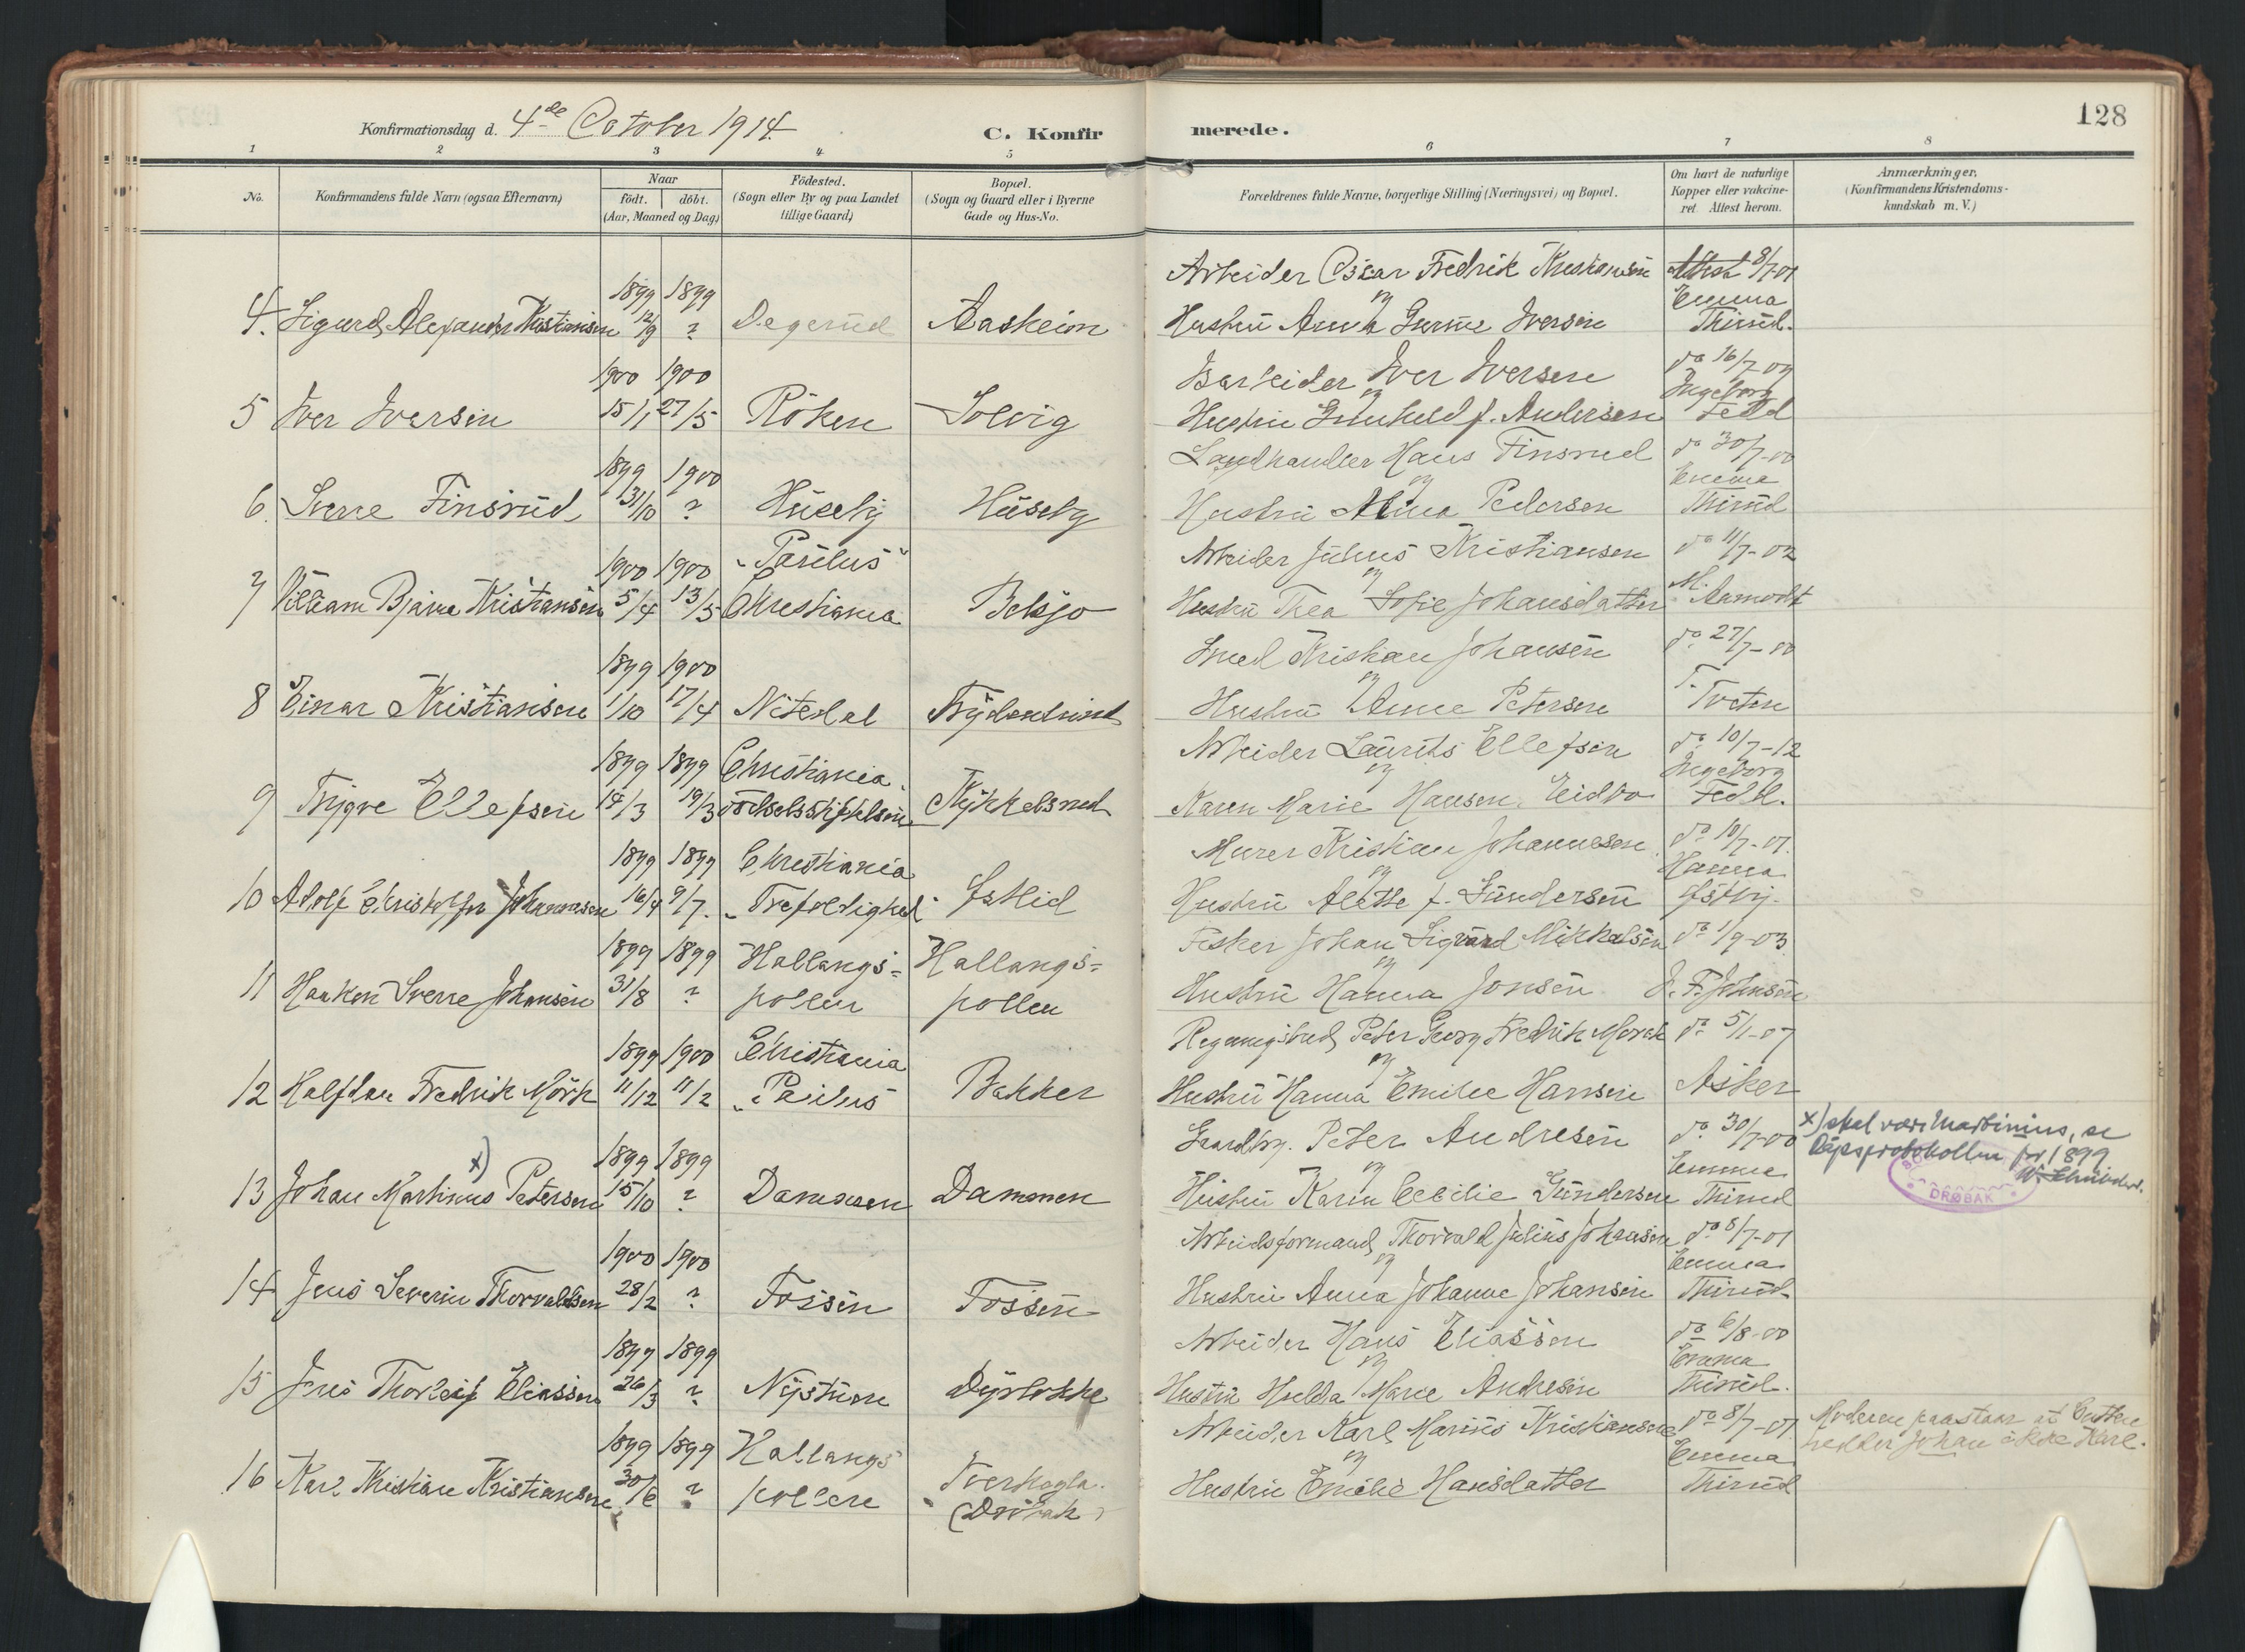 Konfirmationsdag d. 4de October 1914.
C. Konfirmerede.
128
1 2 3 4 5 6 7 8
No.
Konfirmandens fulde Navn (ogsaa Efternavn)
Naar
født. døbt.
(Aar, Maaned og Dag)
Fødested.
(Sogn eller By og paa Landet
tillige Gaard)
Bopæl.
(Sogn og Gaard eller i Byerne
Gade og Hus-No.
Forældrenes fulde Navne, borgerlige Stilling (Næringsvei) og Bopæl.
Om havt de naturlige
Kopper eller vaccine-
ret Attest herom.
Anmærkninger,
(Konfirmandens Kristendoms-
kundskab m. V.)
1899 1899 Arbeider Oscar Fredrik Kristiansen Attest 8/7-01
4. Sigurd Alexander Kristiansen 12/9 ? Degerud Aasheim og Hustru Anna Iversen Emma Thirud.
1900 1900 Iver Iversen do 16/7-09
5 Iver Iversen 15/1 27/5 Röken Solvig og Hustru f. Andersen Ingeborg Fedd
1899 1900 Landhandler Hans Finsrud do 30/7-00
6. Sverre Finsrud 31/10 ? Huseby Huseby og Hustru Pedersen Emma Thirud
1900 1900 "Paulus" Arbeider Julius Kristiansen do 11/7-02
7 William Bjarne Kristiansen 5/4 13/5 Christiania Belsjø og Hustru Thea Sofie Johansdatter M. Aamodt
1899 1900 Smed Kristian Johansen do 27/7-00
8 Einar Kristiansen 1/10 17/4 Nitedal og Hustru Anne Petersen T. Tveten
1899 1899 Christiania Arbeider Laurits Ellefsen do 10/7-12
9 Trygve Ellefsen 14/3 19/3 Födselsstiftelsen Nykkelsrud og Karen Marie Hansen Ingeborg Fedd.
1899 1899 Christiania Murer Kristian Johannesen do 10/7-01.
10 Adolf Kristoffer Johannesen 16/4 9/7. "Trefoldighed" og Hustru Alette f. Gundersen Hanna Östby.
1899 1899 Hallangs= Hallangs= Fisker Johan Sigvard Mikkelsen do 1/9-03
11 Haakon Sverre Johansen 31/8 ? pollen pollen og Hustru Hanna Jonsen J. F. Johnsen
1899 1900 Christiania Peter Georg Fredrik Mørch do 5/1-07
12 Halfdan Fredrik Mörk 11/12 11/2 "Paulus Bakker og Hustru Hanna Emilie Hansen Asker
1899 1899 Gaardbr. Peter Andresen do 30/7-00 x) skal være Martinius, se
Døpsprotokollen for 1899
13 Johan Martinus x) Petersen 15/10 ? Dammen Dammen og Hustru Karen Cecilie Gundersen Emma Thirud
DRØBAK
1900 1900 Arbeidsformand Thorvald Julius Johansen do 8/7-01
14 Jens Severin Thorvaldsen 28/2 ? Fossen Fossen og Hustru Anna Johanne Johansen Emma Thirud
1899 1899 Arbeider Hans Eliassen do 6/8-00
15 Jens Thorleif Eliassen 26/3 ? Nystuen Dyrløkke og Hustru Hulda Marie Andresen Emma Thirud.
1899 1899 Hallangs Arbeider Karl Marius Kristiansen do 8/7-01 Moderen paastaar at Gutten
hedder Johan ikke Karl.
16 Karl Kristian Kristiansen 30/6 ? pollen (Drøbak) og Hustru Emilie Hansdatter Emma Thirud